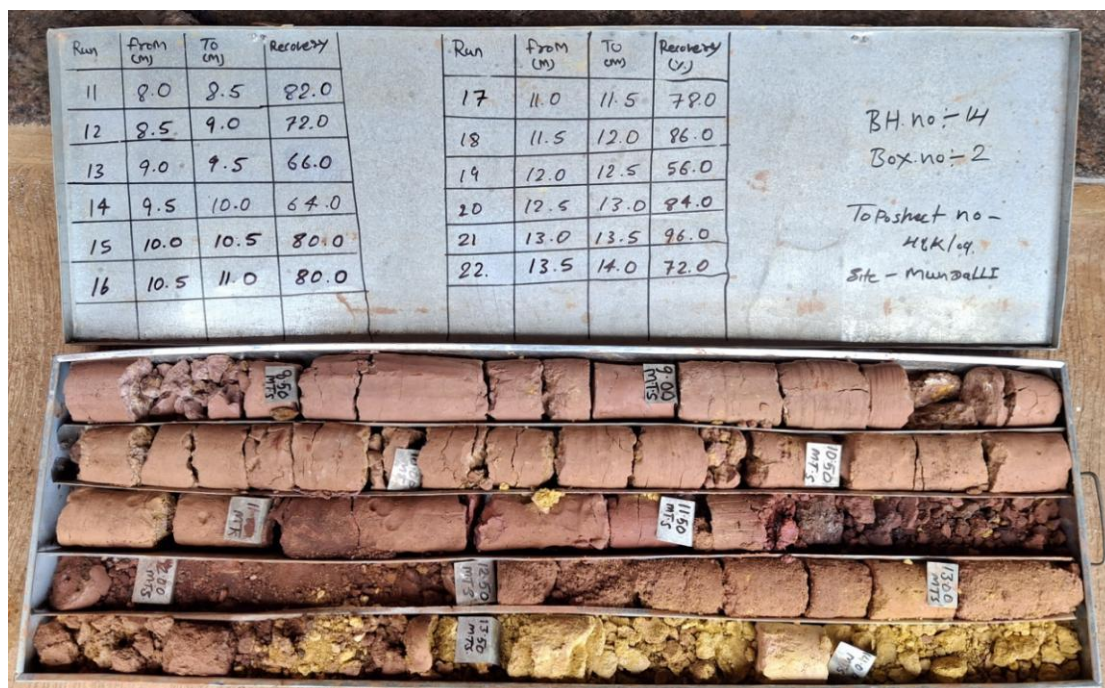 Run From (M) To (M) Recovery
11 8.0 8.5 82.0
12 8.5 9.0 72.0
13 9.0 9.5 66.0
14 9.5 10.0 64.0
15 10.0 10.5 80.0
16 10.5 11.0 80.0
Run From (M) To (M) Recovery (%)
17 11.0 11.5 78.0
18 11.5 12.0 86.0
19 12.0 12.5 56.0
20 12.5 13.0 84.0
21 13.0 13.5 96.0
22. 13.5 14.0 72.0
BH.no:- 14
Box.no:- 2
Toposheet no -
Site - Mundalli
8.50 MTS
9.00 MTS
10.50 MTS
MTS
11.50 MTS
MTS
12.50 MTS
13.00 MTS
13.50 MTS